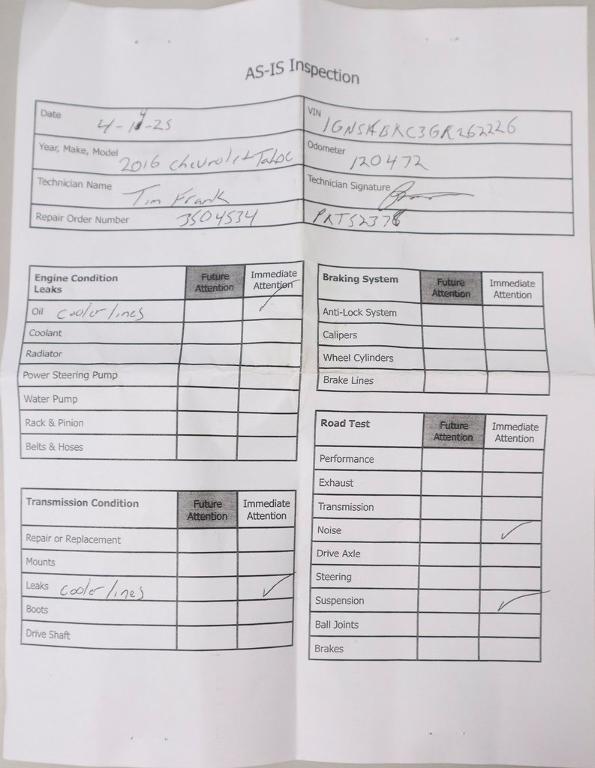 AS-IS Inspection
Date 4-14-25
VIN 1GNSKBKC3GR262226
Year, Make, Model 2016 Chevrolet Tahoe
Odometer 120472
Technician Name Tim Frank
Technician Signature
Repair Order Number 3504534
Engine Condition Leaks Future Attention Immediate Attention
Oil cooler lines ✓
Coolant
Radiator
Power Steering Pump
Water Pump
Rack & Pinion
Belts & Hoses
Transmission Condition Future Attention Immediate Attention
Repair or Replacement
Mounts
Leaks cooler lines ✓
Boots
Drive Shaft
Braking System Future Attention Immediate Attention
Anti-Lock System
Calipers
Wheel Cylinders
Brake Lines
Road Test Future Attention Immediate Attention
Performance
Exhaust
Transmission
Noise ✓
Drive Axle
Steering
Suspension ✓
Ball Joints
Brakes